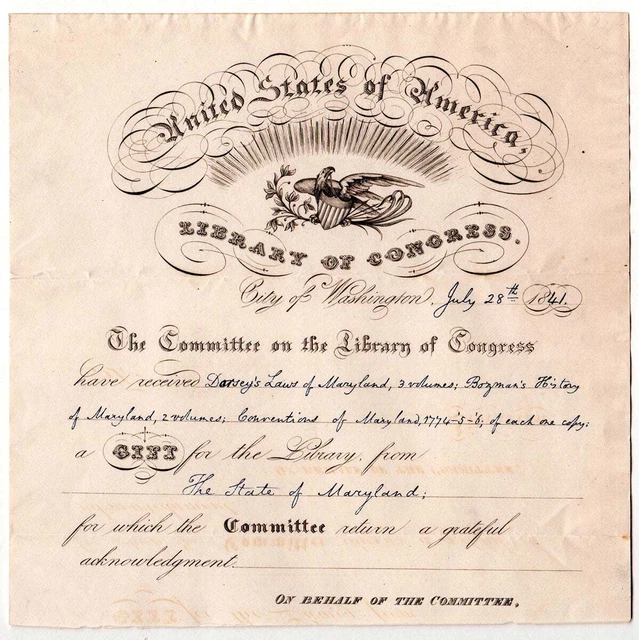 United States of America,
LIBRARY OF CONGRESS.
City of Washington, July 28th 1841.
The Committee on the Library of Congress
have received Dorsey's Laws of Maryland, 3 volumes; Bozman's History
of Maryland, 2 volumes; Conventions of Maryland, 1774-'5-'6; of each one copy;
a GIFT for the Library, from
The State of Maryland;
for which the Committee return a grateful
acknowledgment.
ON BEHALF OF THE COMMITTEE,